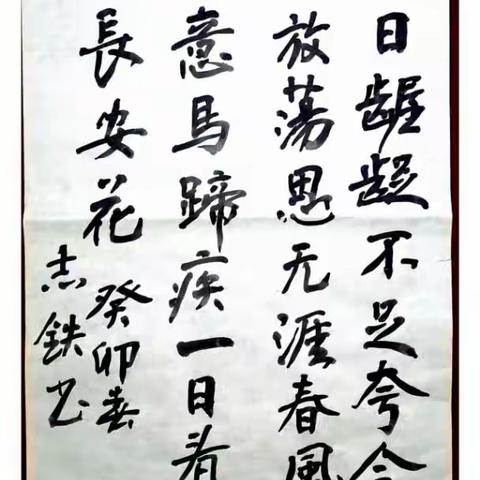 日龌龊不足夸今
放蕩思无涯春風
意馬蹄疾一日看
長安花
癸卯春
志鉄书